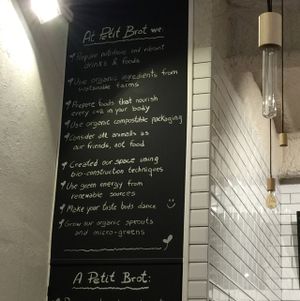 At Petit Brot we:
Prepare nutritious and vibrant
drinks & foods
Use organic ingredients from
sustainable farms
Prepare foods that nourish
every cell in your body
Use organic compostable packaging
Consider all animals as
our friends, not food
Created our space using
bio-construction techniques
Use green energy from
renewable sources
Make your taste buds dance
Grow our organic sprouts
and micro-greens
A Petit Brot: